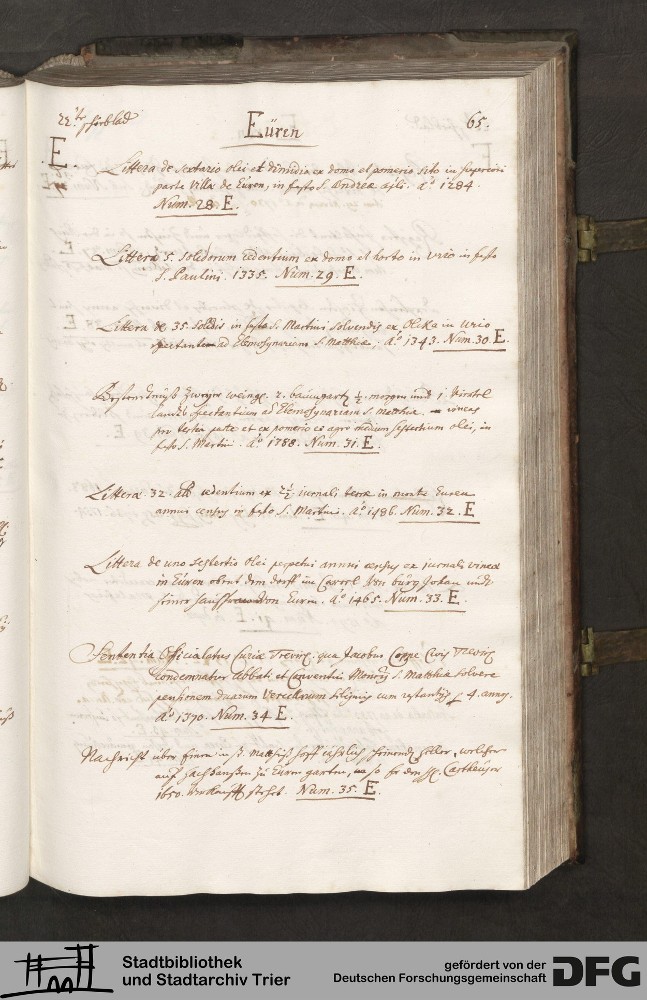 22te schublad
Eüren
65.
E.
Littera de sextario olei et dimidio ex domo et pomerio sito in superiori
parte Villæ de Euren, in festo S. Andreæ apli. aō 1284.
Num. 28 E.
Littera 5. solidorum cedentium ex domo et horto in Urio in festo
S. Paulini. 1335. Num. 29. E.
Littera de 35. solidis in festo S. Martini solvendis ex in Urio
spectantem ad Elemosynariam S. Matthiæ. Aō 1343. Num. 30 E.
zweyer 2. baumgarts ½ morgen undt 1. Viertel
landts spectantium ad Elemosynariam S. Matthiæ. vineas
pro tertia parte et ex pomerio et agro medium sextertium olei, in
festo S. Martini. Aō 1788. Num. 31. E.
Littera 32. alb cedentium ex 2½ jurnali terræ in monte Euren
annui census in festo S. Martini. Aō 1486. Num. 32. E
Littera de uno sextertio olei perpetui annui census ex jurnali vineæ
in Eüren obent dem dorff im Johan undt
seiner von Euren. Aō 1465. Num. 33. E.
Sententia Officialatus Curiæ Treviris. qua Jacobus Coppe Civis Treviris
condemnatur Abbati et Conventui S. Matthiæ solvere
pensionem duarum siliginis cum 4. annis.
Aō 1370. Num. 34 E.
Nachricht über einen S. Matthiß hoff jahrlich scheinenden heller, welcher
auff zu Euren garten, so für den Cartheuser
1650. stehet. Num. 35. E.
Stadtbibliothek
und Stadtarchiv Trier
gefördert von der
Deutschen Forschungsgemeinschaft
DFG